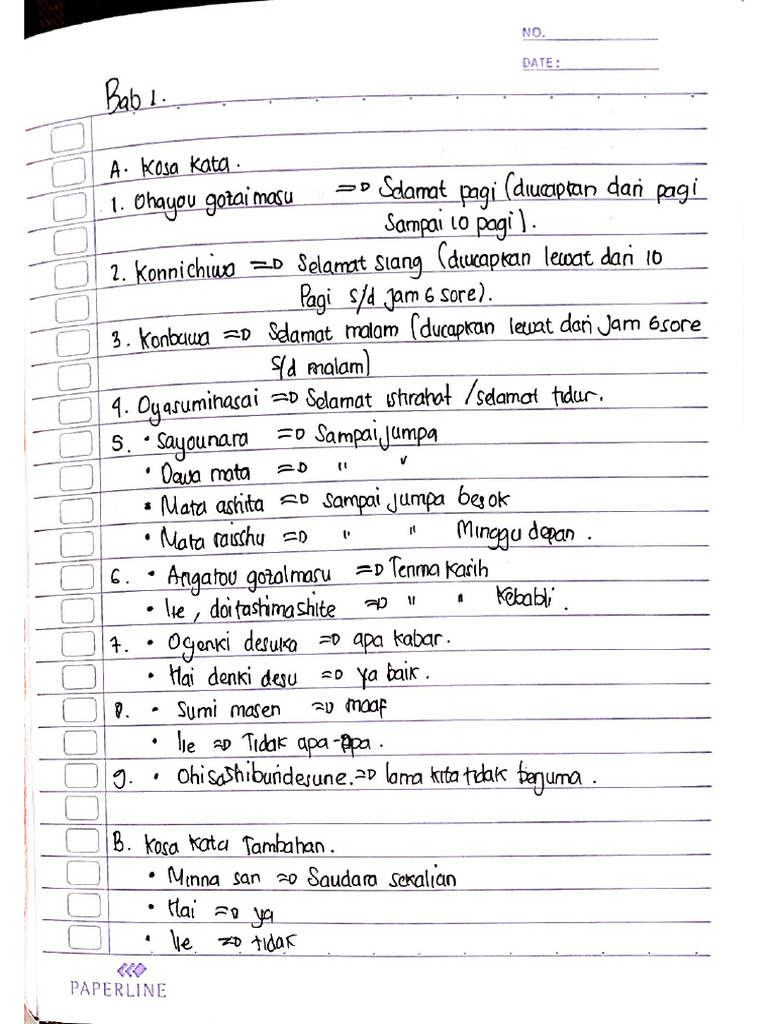 NO.
DATE:
Bab 1.
A. Kosa kata.
1. Ohayou gozaimasu => Selamat pagi (diucaptan dari pagi
Sampai 10 pagi).
2. Konnichiwa => Selamat siang (diucapkan lewat dari 10
Pagi s/d jam 6 sore).
3. Konbawa => Selamat malam (ducapkan lewat dari Jam 6 sore
s/d malam)
4. Oyasuminasai => Selamat istirahat / selamat tidur.
5. • Sayounara => Sampai jumpa
• Dawa mata => " "
• Mata ashita => sampai jumpa besok
• Mata raisshu => " " Minggu depan.
6. • Arigatou gozaimasu => Terima kasih
• Iie, doitashimashite => " " Kebabli.
7. • Ogenki desuka => apa kabar.
• Hai denki desu => ya baik.
8. • Sumi masen => maaf
• Iie => Tidak apa-apa.
9. • Ohisashiburidesune. => lama kita tidak berjuma.
B. Kosa Kata Tambahan.
• Minna san => Saudara sekalian
• Hai => ya
• Iie => tidak
PAPERLINE